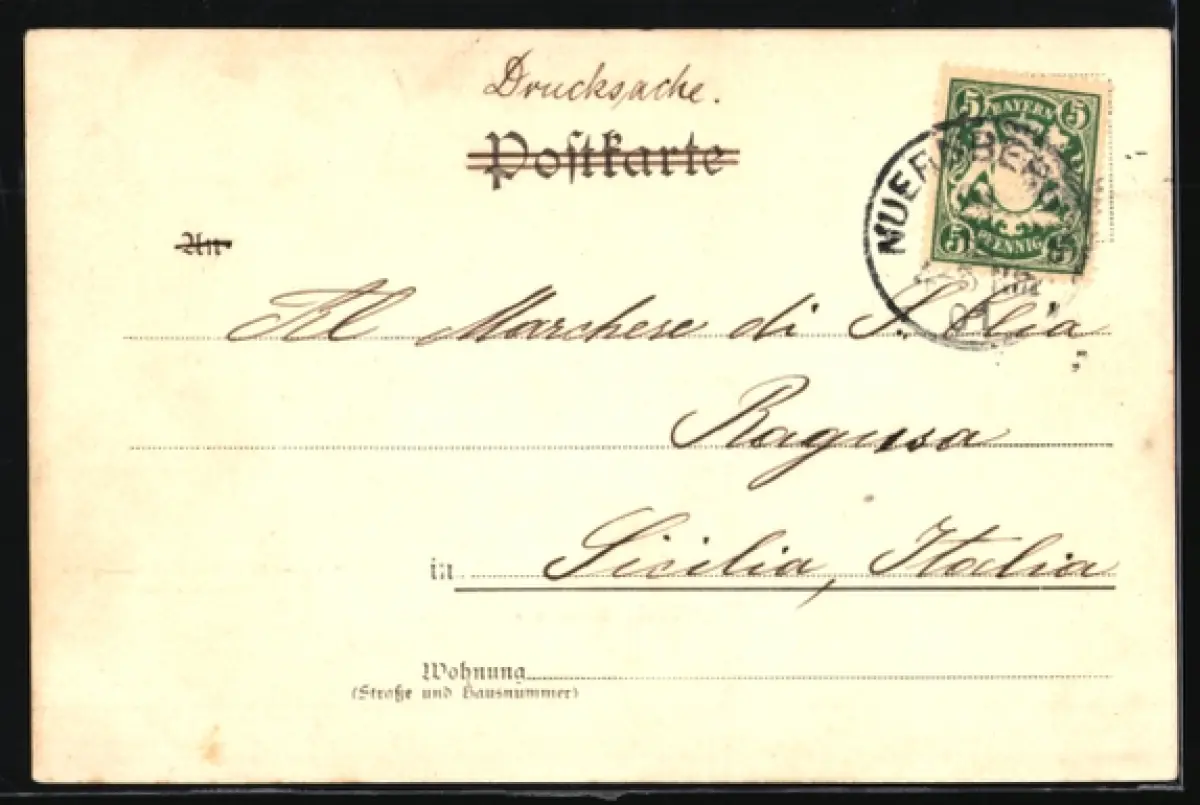 Drucksache.
Postkarte
5 BAYERN 5
5 PFENNIG 5
An
Al Marchese di S. Elia
Ragusa
in Sicilia, Italia
Wohnung
(Straße und Hausnummer)